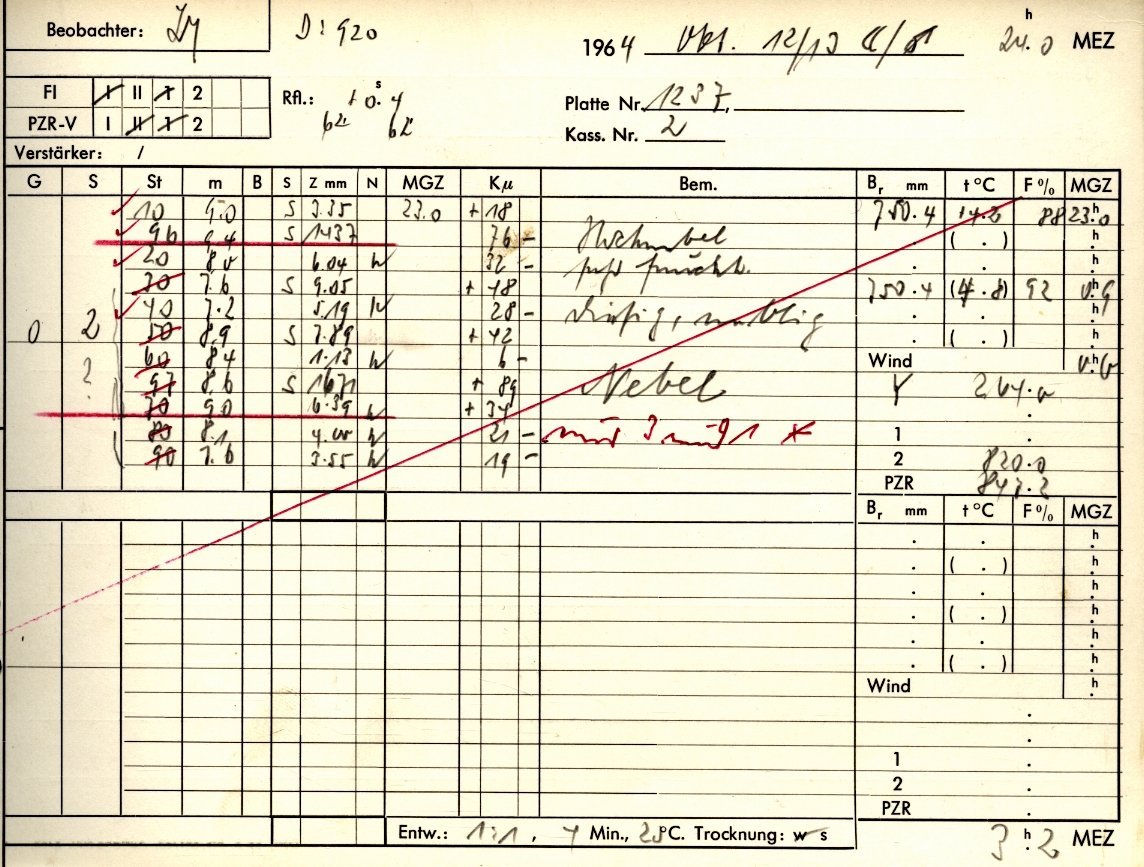 Beobachter: D: 920 1964 Okt. 12/13 24.0 h MEZ
FI I II 1 2 Rfl.: + 0.s4
PZR-V I II 1 2 Platte Nr. 1237,
Kass. Nr. 2
Verstärker: /
G S St m B S Z mm N MGZ Kμ Bem. Br mm t °C F % MGZ
10 9.0 S 3.35 23.0 + 18 750.4 14.2 88 23.h0
96 9.4 S 1437 76 - Hochnebel ( . ) h
20 8.0 6.04 N 32 - sehr feucht. h
30 7.6 S 9.05 + 48 750.4 (4.8) 92 0.h9
40 7.2 5.19 N 28 - diesig, neblig h
0 2 50 8.9 S 7.89 + 42 ( . ) h
60 8.4 1.13 N 6 - Wind 0.h0
? 97 8.6 S 1671 + 89 Nebel
70 9.0 6.39 N + 34
80 8.1 4.00 N 21 - 1
90 7.6 3.55 N 19 - 2 820.0
PZR 847.2
Br mm t °C F % MGZ
. . h
. ( . ) h
. . h
. ( . ) h
. . h
. ( . ) h
Wind h
1
2
PZR
Entw.: 1:1, 4 Min., 20°C. Trocknung: w s 3 h.2 MEZ